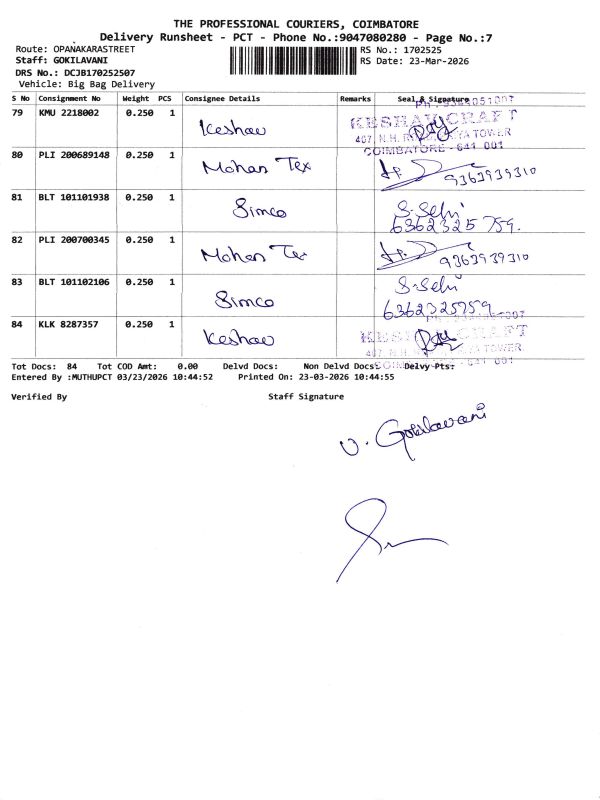 THE PROFESSIONAL COURIERS, COIMBATORE
Delivery Runsheet - PCT - Phone No.:9047080280 - Page No.:7
Route: OPANAKARASTREET RS No.: 1702525
Staff: GOKILAVANI RS Date: 23-Mar-2026
DRS No.: DCJB170252507
Vehicle: Big Bag Delivery
S No Consignment No Weight PCS Consignee Details Remarks Seal & Signature
79 KMU 2218002 0.250 1 Keshav KESHAV CRAFT
COIMBATORE - 641 001
80 PLI 200689148 0.250 1 Mohan Tex 9363939310
81 BLT 101101938 0.250 1 Simco S-Selvi
6362325759.
82 PLI 200700345 0.250 1 Mohan Tex 9363939310
83 BLT 101102106 0.250 1 Simco S-Selvi
6362325759
84 KLK 8287357 0.250 1 Keshav KESHAV CRAFT
Tot Docs: 84 Tot COD Amt: 0.00 Delvd Docs: Non Delvd Docs: Delvy Pts:
Entered By :MUTHUPCT 03/23/2026 10:44:52 Printed On: 23-03-2026 10:44:55
Verified By Staff Signature
V. Gokilavani